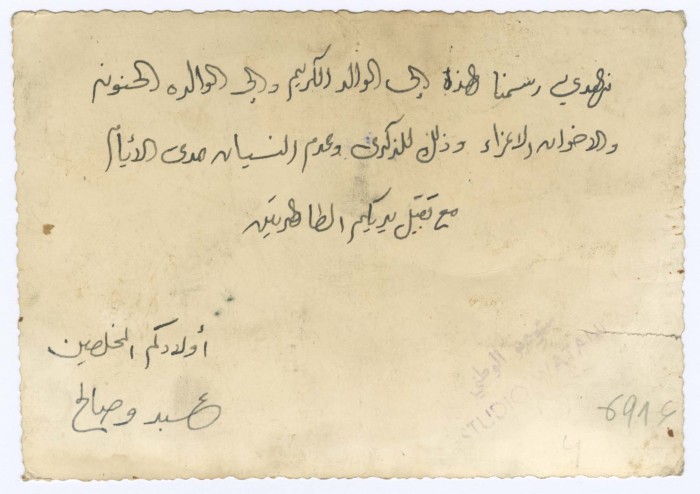 نهدي رسمنا هذه إلى الوالد الكريم وإلى الوالده الحنونه
والاخوان الاعزاء وذلك للذكرى وعدم النسيان مدى الأيام
مع تقبيل يديكم الطاهرتين
أولادكم المخلصين
عبد وصالح
الوطن
STUDIO WATAN